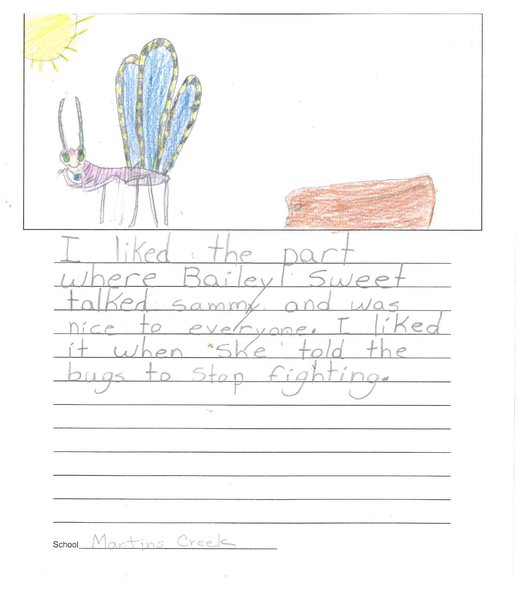 I liked the part
where Bailey Sweet
talked sammy and was
nice to everyone. I liked
it when She told the
bugs to stop fighting.
School Martins Creek